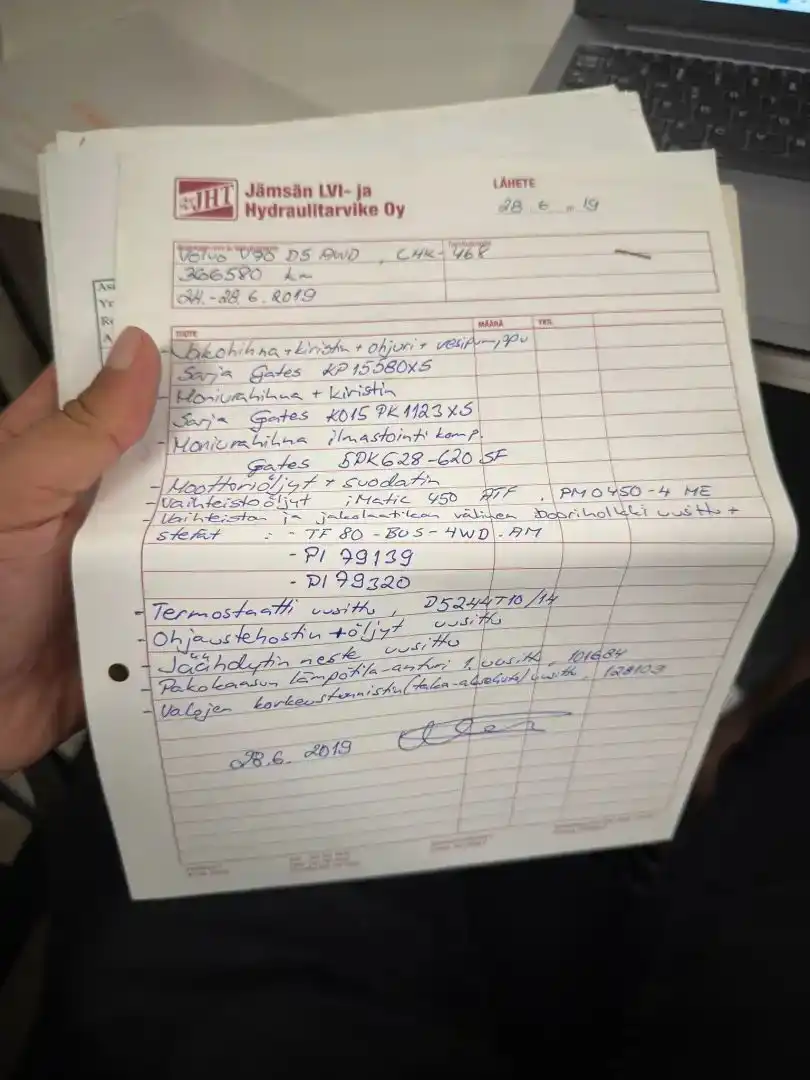 JHT
Jämsän LVI- ja
Hydraulitarvike Oy
LÄHETE
28.6 19
Volvo V70 D5 AWD, CHK-468
366580 km
24.-28.6.2019
TUOTE MÄÄRÄ YKS.
- Jakohihna + kiristin + ohjuri + vesipumppu
Sarja Gates KP15580XS
- Moniurahihna + kiristin
Sarja Gates K015PK1123XS
- Moniurahihna ilmastointi komp.
Gates 5PK628-620 SF
- Moottoriöljyt + suodatin
- Vaihteistoöljyt iMatic 450 ATF, PM0450-4 ME
- Vaihteiston ja jakolaatikon välinen booriholkki uusittu +
stefat : - TF 80-BUS-4WD.AM
- PI 79139
- DI 79320
- Termostaatti uusittu, D5244T10/14
- Ohjaustehostin +öljyt uusittu
- Jäähdytin neste uusittu
- Pakokaasun lämpötila-anturi 1. uusittu, 101684
- Valojen korkeustunnistin (taka-akselisto) uusittu, 128103
28.6. 2019